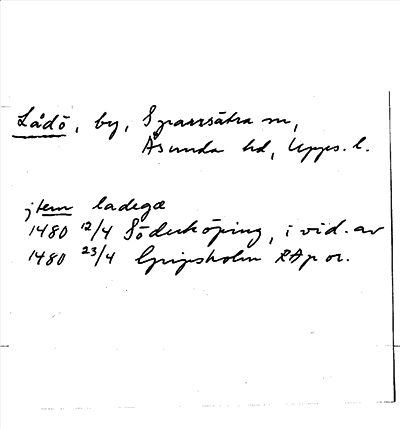 Lådö, by, Sparrsätra sn,
Åsunda hd, Upps. l.
jtem ladegæ
1480 12/4 Söderköping, i vid. av
1480 23/4 Gripsholm RAp or.